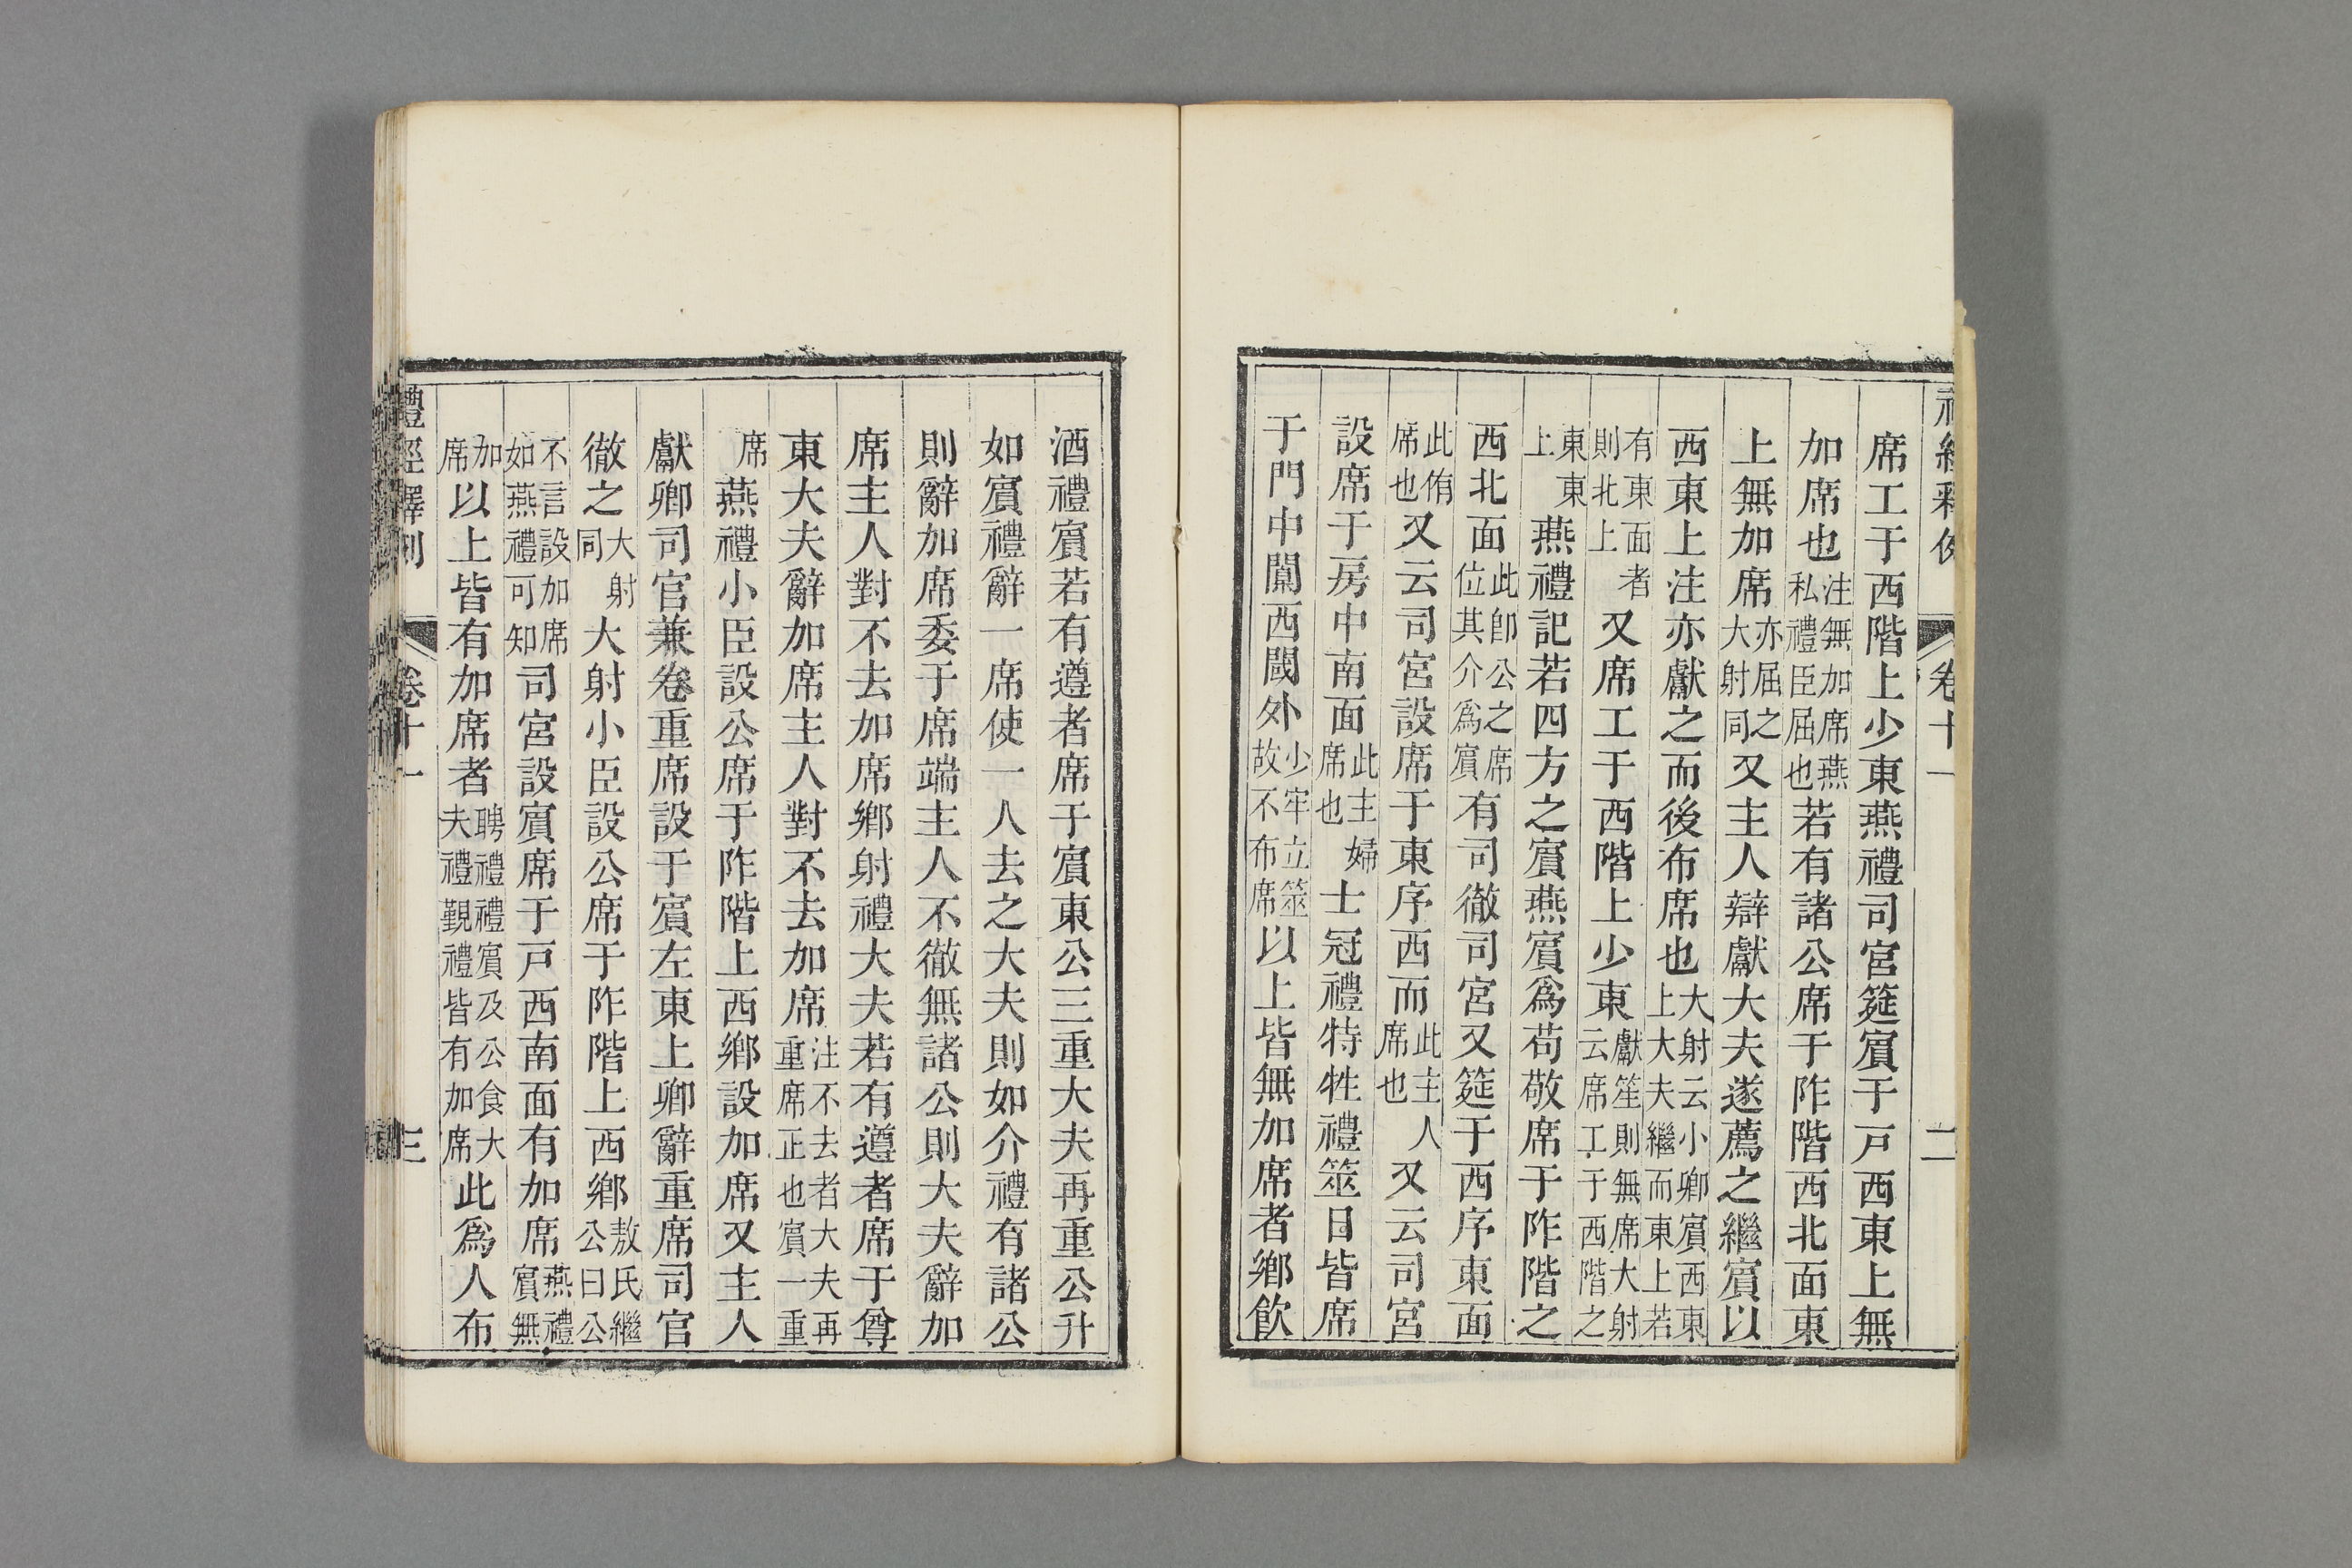 禮經釋例
卷十一
二
席工于西階上少東燕禮司宮筵賓于戶西東上無
加席也注無加席燕私禮臣屈也若有諸公席于阼階西北面東
上無加席亦屈之大射同又主人辯獻大夫遂薦之繼賓以
西東上注亦獻之而後布席也大射云小卿賓西東上大夫繼而東上若
有東面者則北上又席工于西階上少東獻笙則無席大射云席工于西階之
東東上燕禮記若四方之賓燕賓爲苟敬席于阼階之
西北面此卽公之席位其介爲賓有司徹司宮又筵于西序東面
此侑席也又云司宮設席于東序西而此主人席也又云司宮
設席于房中南面此主婦席也士冠禮特牲禮筮日皆席
于門中闑西閾外少牢立筮故不布席以上皆無加席者鄉飲
酒禮賓若有遵者席于賓東公三重大夫再重公升
如賓禮辭一席使一人去之大夫則如介禮有諸公
則辭加席委于席端主人不徹無諸公則大夫辭加
席主人對不去加席鄉射禮大夫若有遵者席于尊
東大夫辭加席主人對不去加席注不去者大夫再重席正也賓一重
席燕禮小臣設公席于阼階上西鄉設加席又主人
獻卿司宮兼卷重席設于賓左東上卿辭重席司官
徹之大射同大射小臣設公席于阼階上西鄉敖氏繼公曰公
不言設加席如燕禮可知司宮設賓席于戶西南面有加席燕禮賓無
加席以上皆有加席者聘禮禮賓及公食大夫禮覲禮皆有加席此爲人布
禮經釋例
卷十一
三